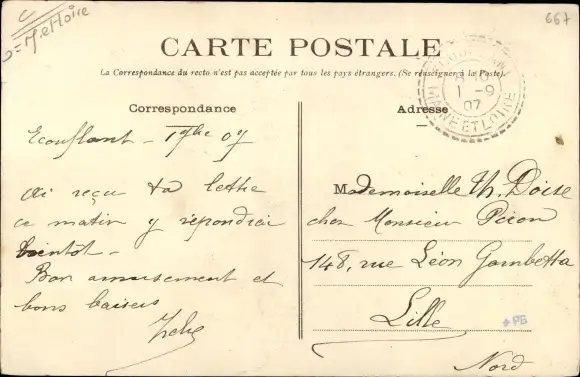 M et Loire
667
CARTE POSTALE
La Correspondance du recto n'est pas acceptée par tous les pays étrangers. (Se renseigner à la Poste).
1 -9
07
MAINE ET LOIRE
Correspondance
Ecouflant - 1 9bre 07
Ai reçu ta lettre
ce matin y répondrai
bientôt -
Bon amusement et
bons baisers
Adresse
Mademoiselle Th. Doise
chez Monsieur Picon
148, rue Léon Gambetta
Lille
Nord
*PB